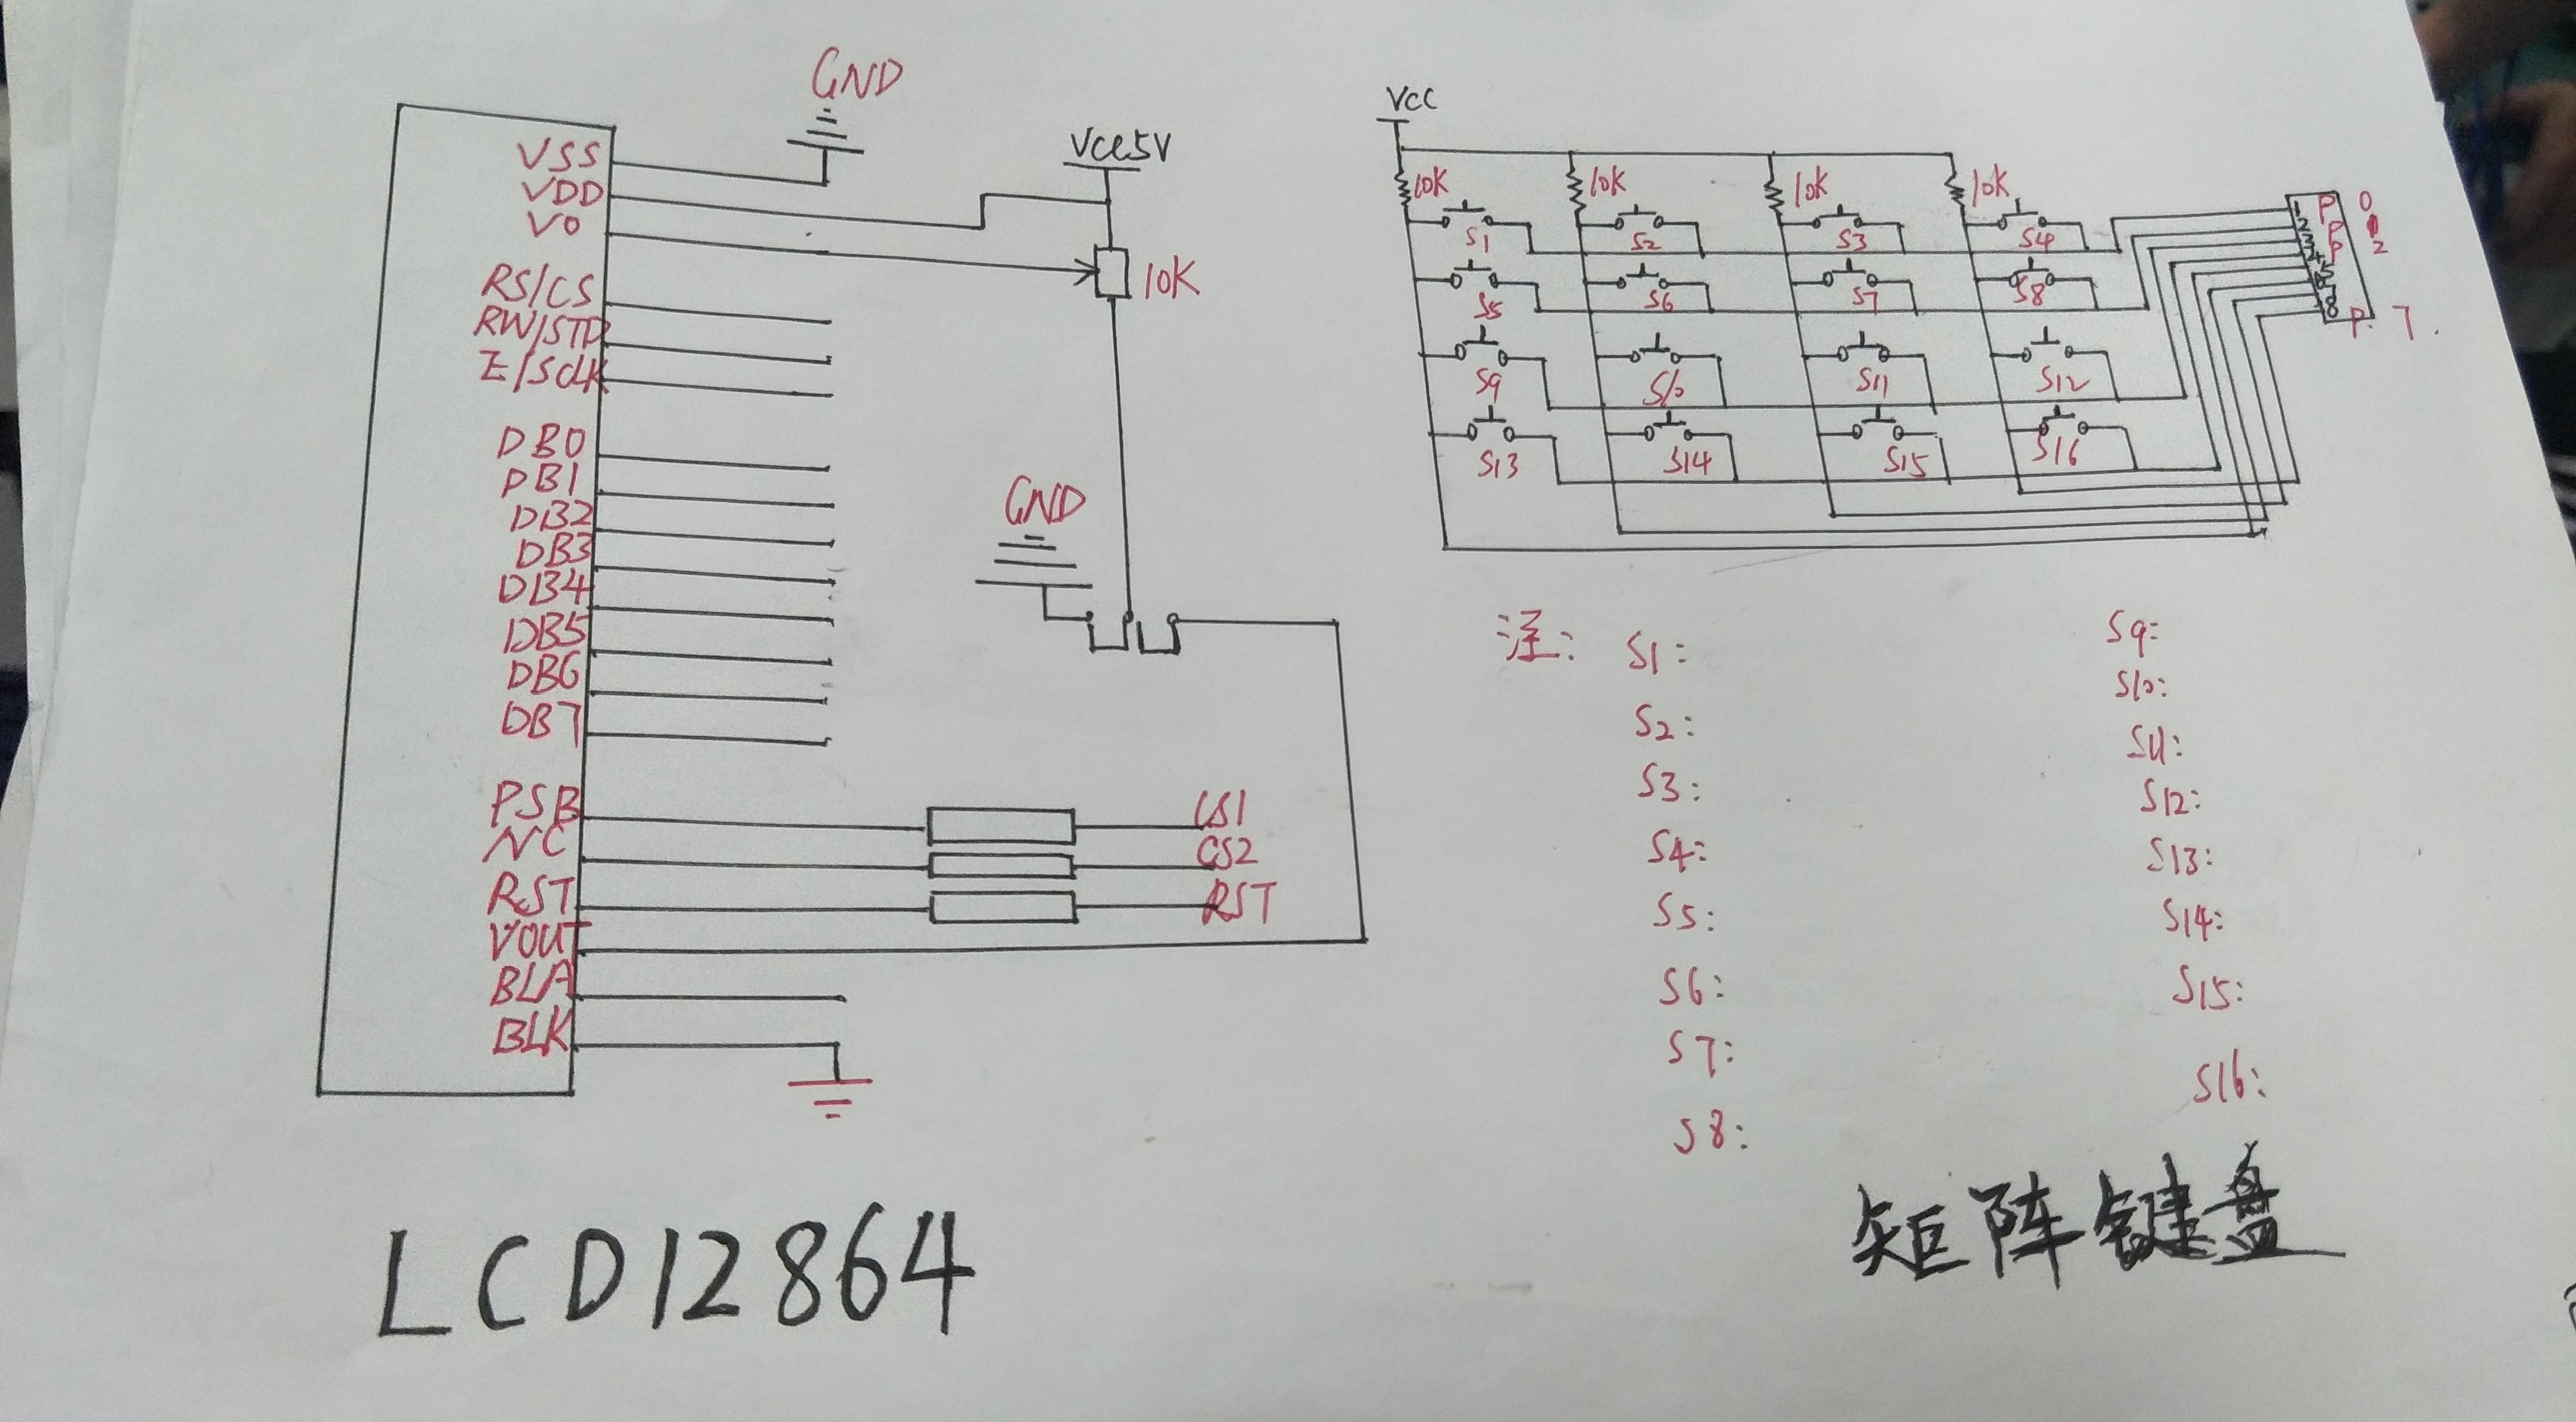 GND
VSS
VDD
VO
RS/CS
RW/STD
E/SCLK
DB0
DB1
DB2
DB3
DB4
DB5
DB6
DB7
PSB
NC
RST
VOUT
BLA
BLK
VCC5V
10K
GND
CS1
CS2
RST
LCD12864
VCC
10K 10K 10K 10K
S1 S2 S3 S4
S5 S6 S7 S8
S9 S10 S11 S12
S13 S14 S15 S16
1 P 0
2 P 1
3 P 2
4
5
6
7
8
P 7
注: S1:
S2:
S3:
S4:
S5:
S6:
S7:
S8:
S9:
S10:
S11:
S12:
S13:
S14:
S15:
S16:
矩阵键盘